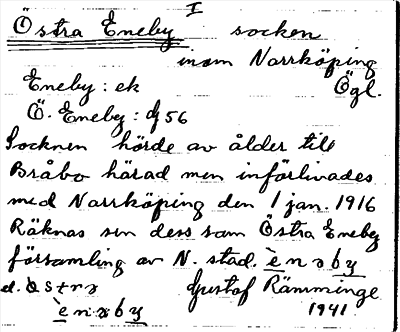 I
Östra Eneby socken
inom Norrköping
Eneby : ek Ögl.
Ö. Eneby : dj 56
Socknen hörde av ålder till
Bråbo härad men införlivades
med Norrköping den 1 jan. 1916
Räknas sen dess som Östra Eneby
församling av N. stad. è n ə b y
el. Gustof Rämminge
è n ə b y 1941.